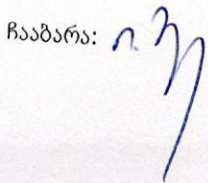 ჩააბარა: